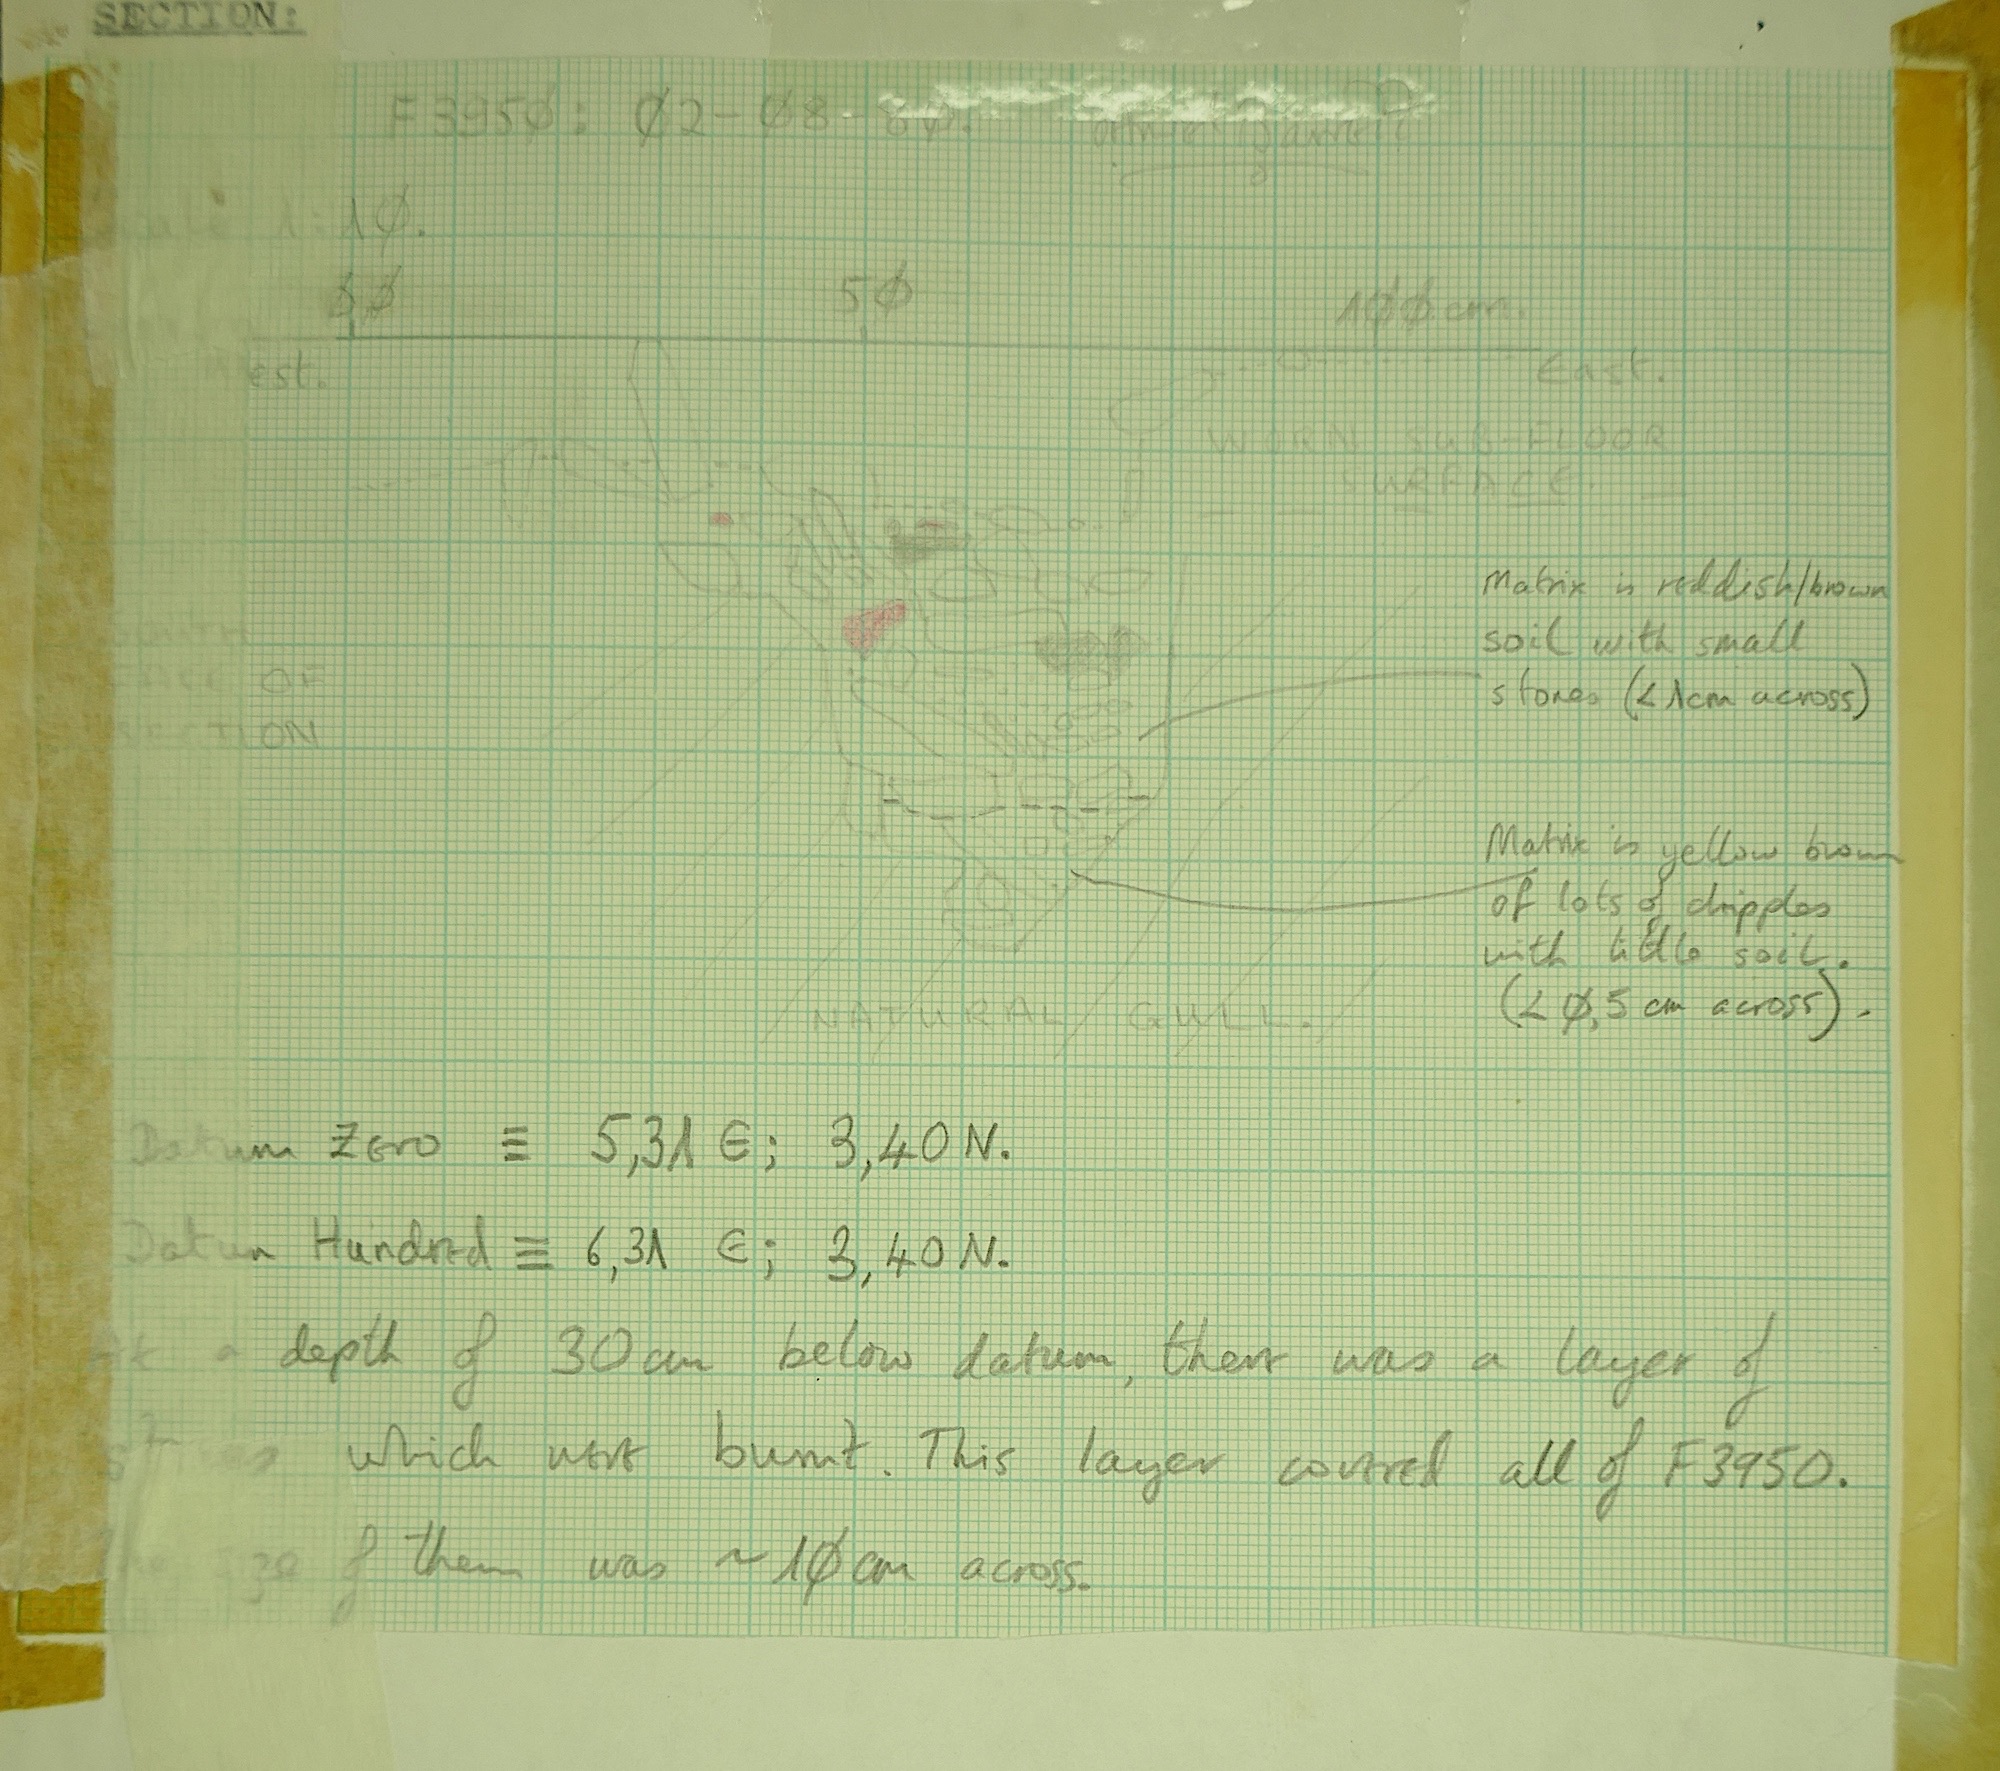 SECTION:
F395Ø: Ø2-Ø8-8Ø.
Scale 1:1Ø.
Ø,Ø 5Ø 1ØØ cm.
West. East.
WORN SUB-FLOOR
SURFACE.
Matrix is reddish/brown
soil with small
stones (<1cm across)
SOUTH
FACE OF
SECTION
Matrix is yellow brown
of lots of dripples
with little soil.
(<Ø,5 cm across).
NATURAL GULL.
Datum Zero ≡ 5,31 E; 3,40 N.
Datum Hundred ≡ 6,31 E; 3,40 N.
At a depth of 30 cm below datum, there was a layer of
stones which were burnt. This layer covered all of F3950.
The size of them was ~1Ø cm across.